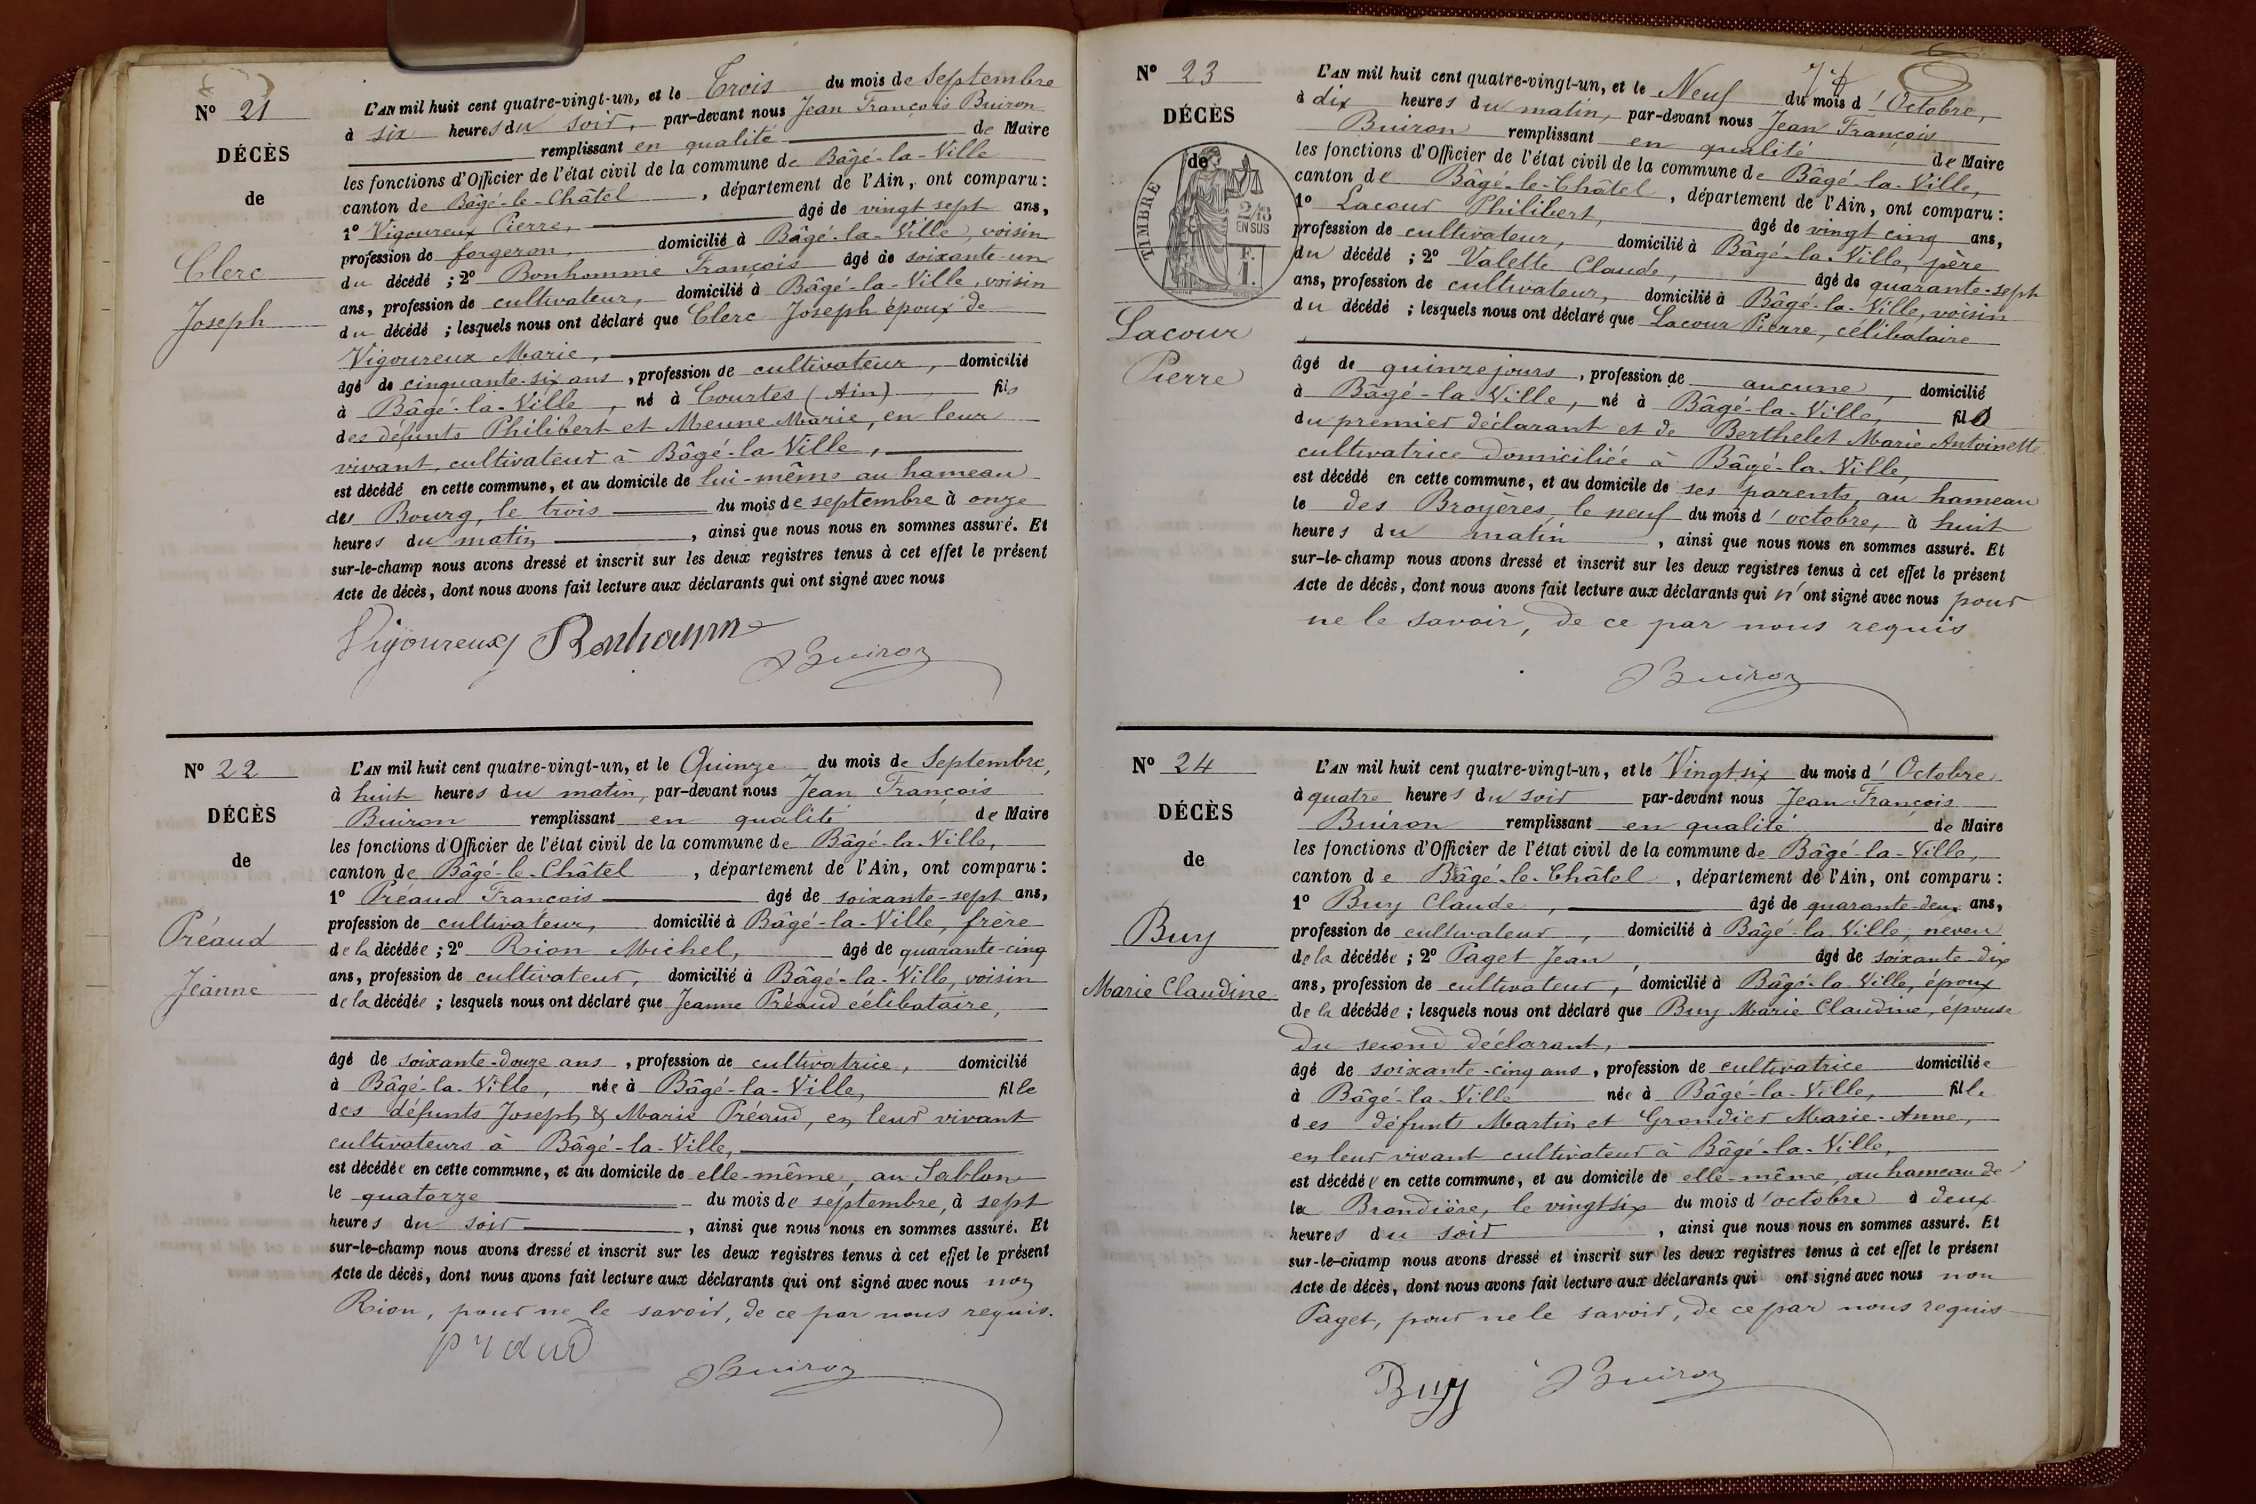 N° 21
DÉCÈS
de
Clerc
Joseph
L'AN mil huit cent quatre-vingt-un, et le Trois du mois de Septembre
à six heures du soir, par-devant nous Jean François Buiron
remplissant en qualité de Maire
les fonctions d'Officier de l'état civil de la commune de Bâgé-la-Ville
canton de Bâgé-le-Châtel, département de l'Ain, ont comparu :
1° Vigoureux Pierre, âgé de vingt sept ans,
profession de forgeron, domicilié à Bâgé-la-Ville, voisin
du décédé ; 2° Bonhomme François âgé de soixante-un
ans, profession de cultivateur, domicilié à Bâgé-la-Ville, voisin
du décédé ; lesquels nous ont déclaré que Clerc Joseph époux de
Vigoureux Marie,
âgé de cinquante-six ans, profession de cultivateur, domicilié
à Bâgé-la-Ville, né à Courtes (Ain) fils
des défunts Philibert et Meune Marie, en leur
vivant, cultivateur à Bâgé-la-Ville,
est décédé en cette commune, et au domicile de lui-même au hameau
du Bourg, le trois du mois de septembre à onze
heures du matin, ainsi que nous nous en sommes assuré. Et
sur-le-champ nous avons dressé et inscrit sur les deux registres tenus à cet effet le présent
Acte de décès, dont nous avons fait lecture aux déclarants qui ont signé avec nous
Vigoureux Bonhomme
Buiron
N° 22
DÉCÈS
de
Préaud
Jeanne
L'AN mil huit cent quatre-vingt-un, et le Quinze du mois de Septembre,
à huit heures du matin, par-devant nous Jean François
Buiron remplissant en qualité de Maire
les fonctions d'Officier de l'état civil de la commune de Bâgé-la-Ville,
canton de Bâgé-le-Châtel, département de l'Ain, ont comparu :
1° Préaud François âgé de soixante-sept ans,
profession de cultivateur, domicilié à Bâgé-la-Ville, frère
de la décédée ; 2° Rion Michel, âgé de quarante-cinq
ans, profession de cultivateur, domicilié à Bâgé-la-Ville, voisin
de la décédée ; lesquels nous ont déclaré que Jeanne Préaud célibataire,
âgé de soixante-douze ans, profession de cultivatrice, domicilié
à Bâgé-la-Ville, née à Bâgé-la-Ville, fille
des défunts Joseph & Marie Préaud, en leur vivant
cultivateurs à Bâgé-la-Ville,
est décédée en cette commune, et au domicile de elle-même, au Sablon
le quatorze du mois de septembre, à sept
heures du soir, ainsi que nous nous en sommes assuré. Et
sur-le-champ nous avons dressé et inscrit sur les deux registres tenus à cet effet le présent
Acte de décès, dont nous avons fait lecture aux déclarants qui ont signé avec nous non
Rion, pour ne le savoir, de ce par nous requis.
Buiron
N° 23
DÉCÈS
de
TIMBRE
2/10
EN SUS
F.
1.
Lacour
Pierre
L'AN mil huit cent quatre-vingt-un, et le Neuf du mois d'Octobre,
à dix heures du matin, par-devant nous Jean François
Buiron remplissant en qualité de Maire
les fonctions d'Officier de l'état civil de la commune de Bâgé-la-Ville,
canton de Bâgé-le-Châtel, département de l'Ain, ont comparu :
1° Lacour Philibert, âgé de vingt cinq ans,
profession de cultivateur, domicilié à Bâgé-la-Ville, père
du décédé ; 2° Valette Claude, âgé de quarante-sept
ans, profession de cultivateur, domicilié à Bâgé-la-Ville, voisin
du décédé ; lesquels nous ont déclaré que Lacour Pierre, célibataire
âgé de quinze jours, profession de aucune, domicilié
à Bâgé-la-Ville, né à Bâgé-la-Ville, fils
du premier déclarant et de Berthelet Marie Antoinette
cultivatrice domiciliée à Bâgé-la-Ville,
est décédé en cette commune, et au domicile de ses parents, au hameau
le des Broyères, le neuf du mois d'octobre, à huit
heures du matin, ainsi que nous nous en sommes assuré. Et
sur-le-champ nous avons dressé et inscrit sur les deux registres tenus à cet effet le présent
Acte de décès, dont nous avons fait lecture aux déclarants qui n'ont signé avec nous pour
ne le savoir, de ce par nous requis
Buiron
N° 24
DÉCÈS
de
Buy
Marie Claudine
L'AN mil huit cent quatre-vingt-un, et le Vingt six du mois d'Octobre
à quatre heures du soir par-devant nous Jean François
Buiron remplissant en qualité de Maire
les fonctions d'Officier de l'état civil de la commune de Bâgé-la-Ville,
canton de Bâgé-le-Châtel, département de l'Ain, ont comparu :
1° Buy Claude, âgé de quarante-deux ans,
profession de cultivateur, domicilié à Bâgé-la-Ville, neveu
de la décédée ; 2° Paget Jean, âgé de soixante-dix
ans, profession de cultivateur, domicilié à Bâgé-la-Ville, époux
de la décédée ; lesquels nous ont déclaré que Buy Marie Claudine, épouse
du second déclarant,
âgé de soixante-cinq ans, profession de cultivatrice domiciliée
à Bâgé-la-Ville née à Bâgé-la-Ville, fille
des défunts Martin et Grandier Marie-Anne,
en leur vivant cultivateur à Bâgé-la-Ville,
est décédée en cette commune, et au domicile de elle-même, au hameau de
la Brandière, le vingt six du mois d'octobre à deux
heures du soir, ainsi que nous nous en sommes assuré. Et
sur-le-champ nous avons dressé et inscrit sur les deux registres tenus à cet effet le présent
Acte de décès, dont nous avons fait lecture aux déclarants qui ont signé avec nous non
Paget, pour ne le savoir, de ce par nous requis
Buy Buiron